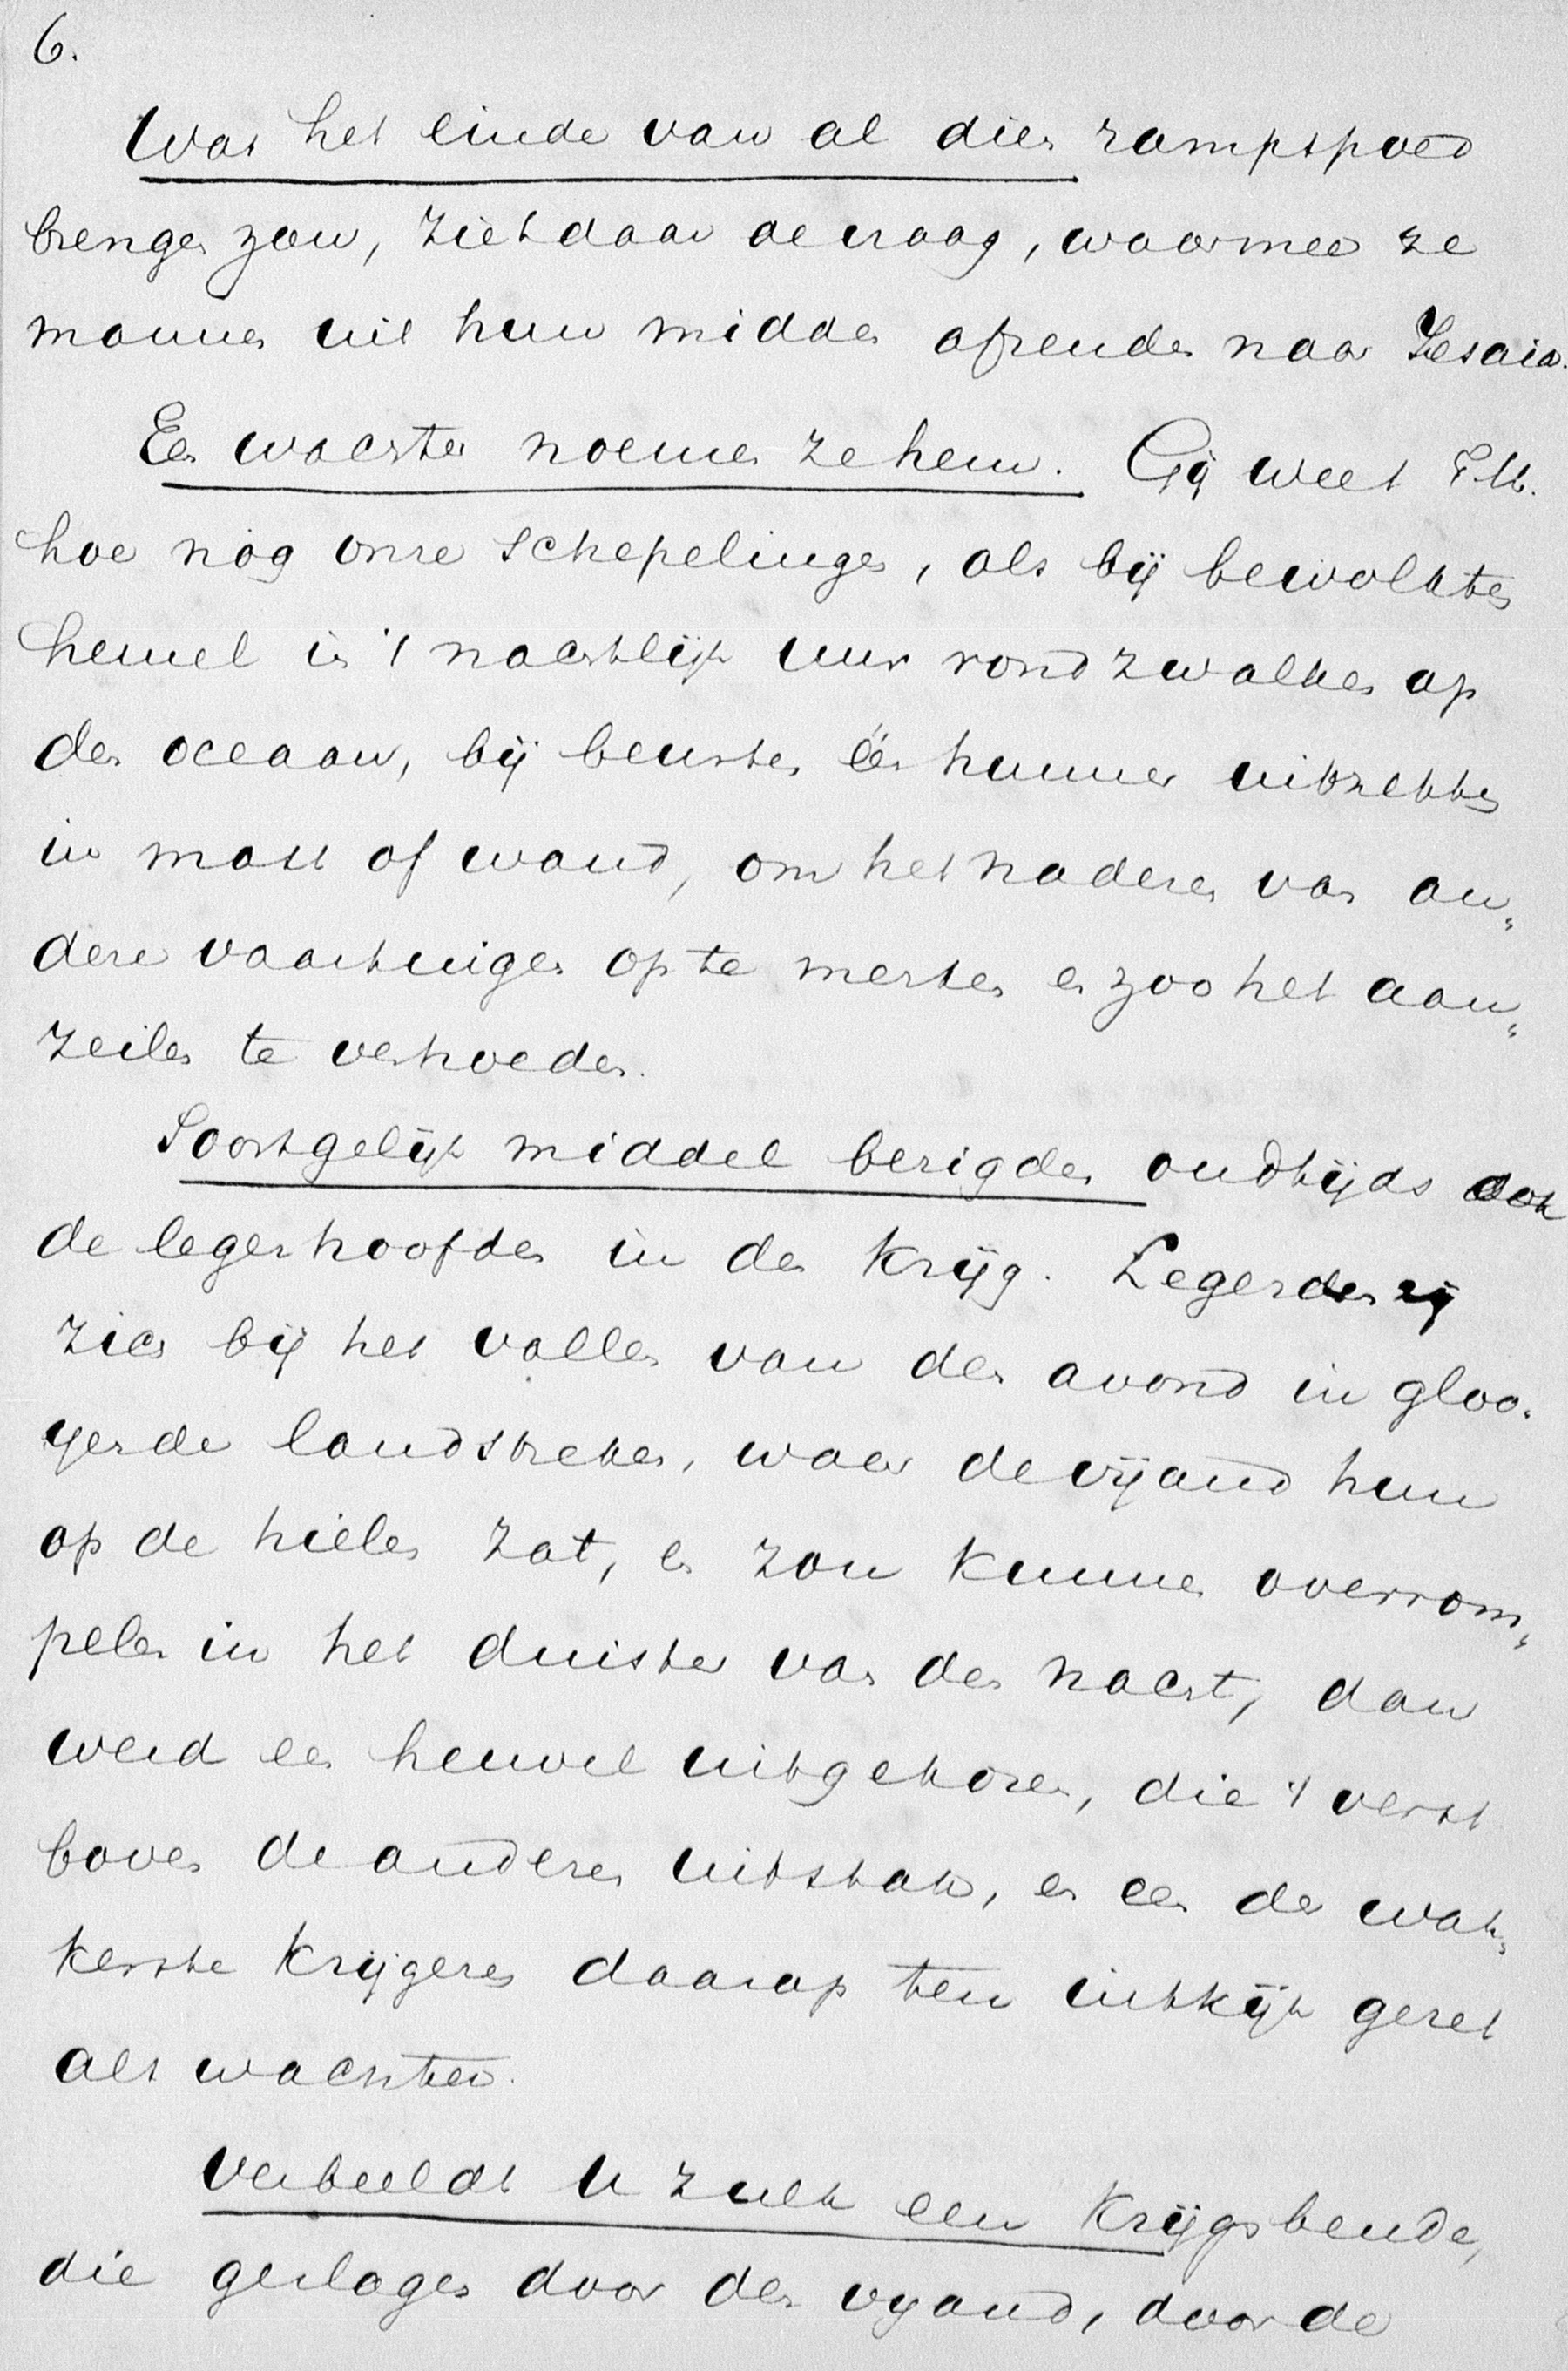 6.
Wat het einde van al dien rampspoed
brengen zou, ziet daar de vraag, waarmee ze
mannen uit hun midden afzenden naar Jesaia.
Een wachter noemen ze hem. Gij weet
hoe nog onze schepelingen, als bij bewolkten
hemel in 't nachtlijk uur rondzwalken op
den oceaan, bij beurten één hunner uitzetten
in mast of wand, om het naderen van an„
dere vaartuigen op te merken en zoo het aan„
zeilen te verhoeden.
Soortgelijk middel bezigden oudtijds ook
de legerhoofden in den krijg. Legerden zij
zich bij het vallen van den avond in gloo„
yende landstreken, waar de vijand hun
op de hielen zat, en zou kunnen overrom„
pelen in het duister van den nacht, dan
werd een heuvel uitgekozen, die 't verst
boven de anderen uitstak, en een der wak„
kerste krijgeren daarop ten uitkijk gezet
als wachter.
Verbeeldt U zulk een krijgsbende,
die geslagen door den vyand, door de